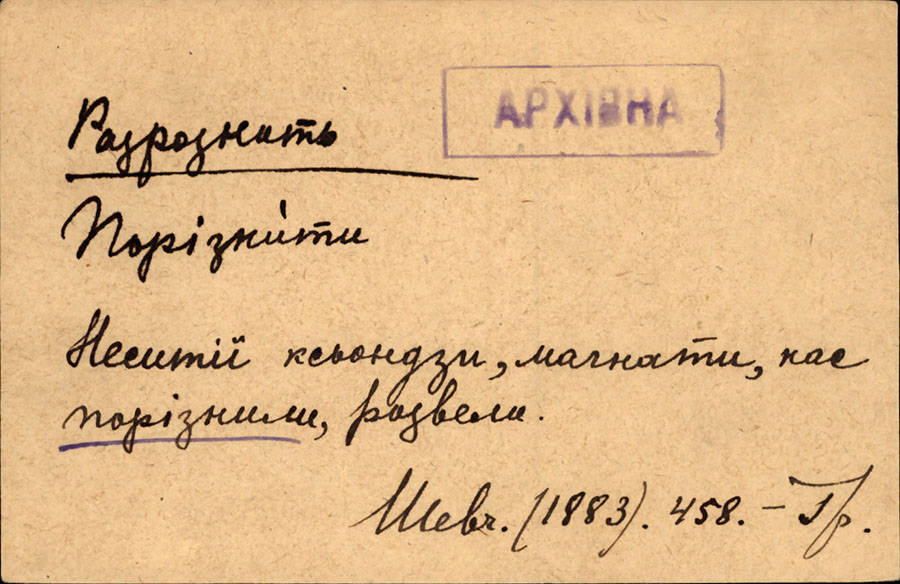 АРХІВНА
Разрознить
Порізни́ти
Неситії ксьондзи, магнати, нас
порізнили, розвели.
Шевч. (1883). 458. – Гр.